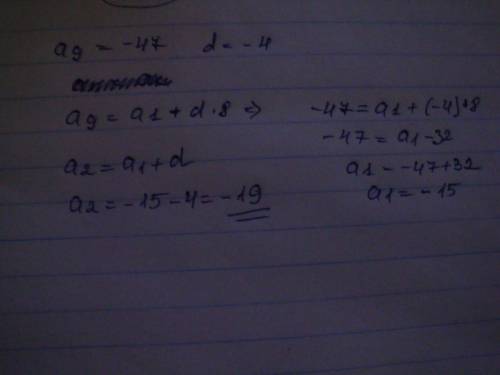 a9 = -47 d = -4
a9 = a1 + d·8 =>
a2 = a1 + d
a2 = -15 - 4 = -19
-47 = a1 + (-4)·8
-47 = a1 - 32
a1 = -47 + 32
a1 = -15